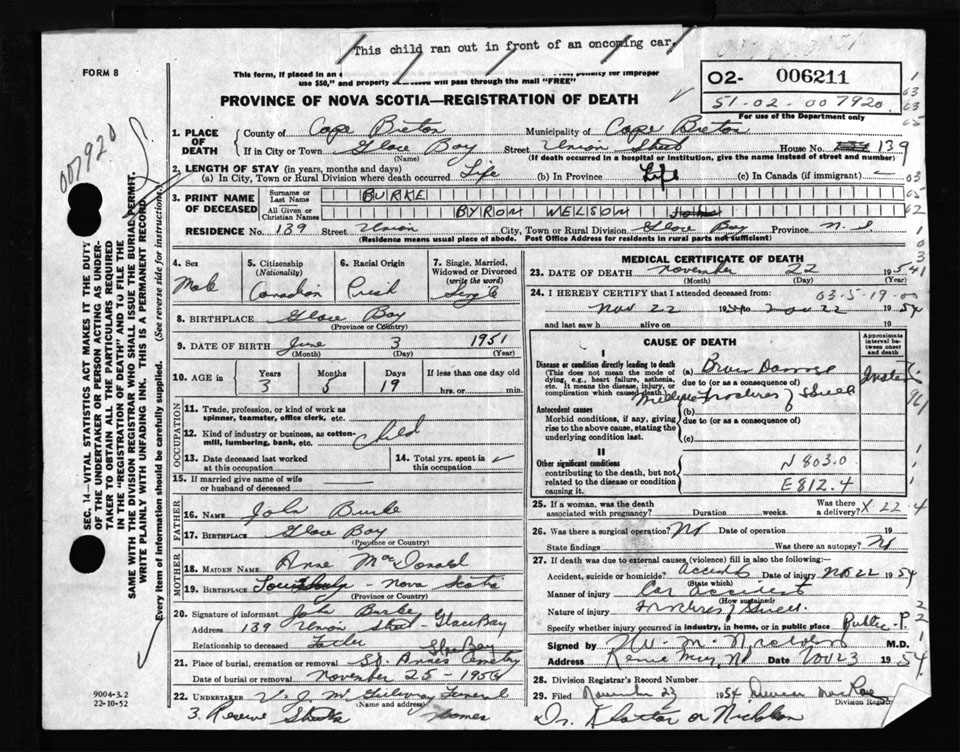 This child ran out in front of an oncoming car.
FORM 8
This form, if placed in an
penalty for improper
use $50," and property will pass through the mail "FREE"
PROVINCE OF NOVA SCOTIA—REGISTRATION OF DEATH
O2- 006211
51-02-007920
For use of the Department only
007920
1. PLACE OF DEATH
County of Cape Breton Municipality of Cape Breton
If in City or Town Glace Bay Street Union Street House No. 139
(Name) (If death occurred in a hospital or institution, give the name instead of street and number)
2. LENGTH OF STAY (in years, months and days)
(a) In City, Town or Rural Division where death occurred Life (b) In Province Life (c) In Canada (if immigrant)
3. PRINT NAME OF DECEASED
Surname or Last Name BURKE
All Given or Christian Names BYRON WELSON
RESIDENCE No. 139 Street Union City, Town or Rural Division Glace Bay Province N.S
(Residence means usual place of abode. Post Office Address for residents in rural parts not sufficient)
4. Sex Male
5. Citizenship (Nationality) Canadian
6. Racial Origin
7. Single, Married, Widowed or Divorced (write the word) Single
8. BIRTHPLACE Glace Bay
(Province or Country)
9. DATE OF BIRTH June 3 1951
(Month) (Day) (Year)
10. AGE in Years 3 Months 5 Days 19 If less than one day old hrs. or min.
OCCUPATION
11. Trade, profession, or kind of work as spinner, teamster, office clerk, etc.
12. Kind of industry or business, as cotton-mill, lumbering, bank, etc. Child
13. Date deceased last worked at this occupation
14. Total yrs. spent in this occupation
15. If married give name of wife or husband of deceased
FATHER
16. NAME John Burke
17. BIRTHPLACE Glace Bay
(Province or Country)
MOTHER
18. MAIDEN NAME Anne MacDonald
19. BIRTHPLACE Louisburg - Nova Scotia
(Province or Country)
20. Signature of informant John Burke
Address 139 Union Street - Glace Bay
Relationship to deceased Father
21. Place of burial, cremation or removal St. Annes Cemetery Glace Bay
Date of burial or removal November 25 - 1954
22. UNDERTAKER V. J. McGillivray Funeral
(Name and address)
3. Reserve Street Homes
MEDICAL CERTIFICATE OF DEATH
23. DATE OF DEATH November 22 1954
(Month) (Day) (Year)
24. I HEREBY CERTIFY that I attended deceased from:
03-5-19-00
Nov 22 19 to Nov 22 1954
and last saw h alive on 19
CAUSE OF DEATH
Approximate interval between onset and death
I
Disease or condition directly leading to death
(This does not mean the mode of dying, e.g., heart failure, asthenia, etc. It means the disease, injury, or complication which caused death.)
(a) Brain Damage
due to (or as a consequence of)
Multiple Fractures of Skull
Antecedent causes
Morbid conditions, if any, giving rise to the above cause, stating the underlying condition last.
(b)
due to (or as a consequence of)
(c)
II
Other significant conditions
contributing to the death, but not related to the disease or condition causing it.
N 803.0
E 812.4
25. If a woman, was the death associated with pregnancy? Duration weeks. Was there a delivery? X 22.4
26. Was there a surgical operation? No Date of operation 19
State findings Was there an autopsy? No
27. If death was due to external causes (violence) fill in also the following:
Accident, suicide or homicide? Accident Date of injury Nov 22 1954
(State which)
Manner of injury Car accident
(How sustained)
Nature of injury Fractures of Skull
Specify whether injury occurred in industry, in home, or in public place Public P.
Signed by M.D.
Address Nov 23 1954
28. Division Registrar's Record Number
29. Filed November 23 1954 Duncan MacRae
Division Registrar
Dr. or Nicholson
SEC. 14—VITAL STATISTICS ACT MAKES IT THE DUTY
OF THE UNDERTAKER OR PERSON ACTING AS UNDER-
TAKER TO OBTAIN ALL THE PARTICULARS REQUIRED
IN THE "REGISTRATION OF DEATH" AND TO FILE THE
SAME WITH THE DIVISION REGISTRAR WHO SHALL ISSUE THE BURIAL PERMIT.
WRITE PLAINLY WITH UNFADING INK. THIS IS A PERMANENT RECORD.
Every item of information should be carefully supplied. (See reverse side for instructions.)
9004-3.2
22-10-52